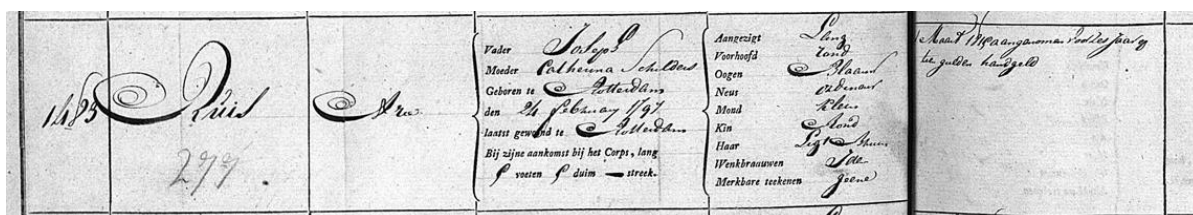 1483
Ruis
Are
277.
Vader Joseph
Moeder Catharina Schilders
Geboren te Rotterdam
den 24 februarij 1797
laatst gewoond te Rotterdam
Bij zijne aankomst bij het Corps, lang
5 voeten 5 duim — streek.
Aangezigt Lang
Voorhoofd rond
Oogen Blaauw
Neus ordinair
Mond klein
Kin Rond
Haar Ligt Bruin
Wenkbraauwen Ide
Merkbare teekenen geene
Maart aangenomen voor zes jaar op
tien gulden handgeld